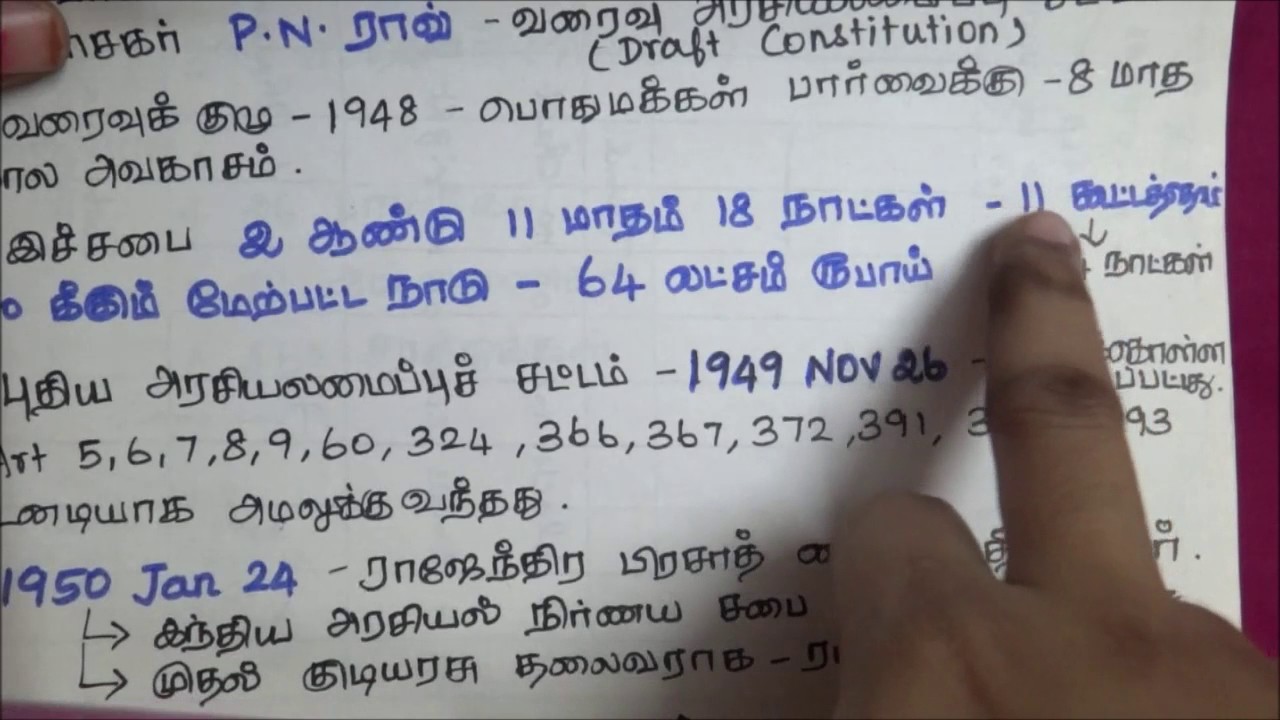 P.N. ராவ் - வரைவு
(Draft Constitution)
வரைவுக் குழு - 1948 - பொதுமக்கள் பார்வைக்கு - 8 மாத
கால அவகாசம்.
இச்சபை 2 ஆண்டு 11 மாதம் 18 நாட்கள் - 11 கூட்டத்தொடர்
நாட்கள்
மேற்பட்ட நாடு - 64 லட்சம் ரூபாய்
புதிய அரசியலமைப்புச் சட்டம் - 1949 NOV 26 -
Art 5, 6, 7, 8, 9, 60, 324, 366, 367, 372, 391, 93
அமலுக்கு வந்தது.
1950 Jan 24 - ராஜேந்திர பிரசாத்
இந்திய அரசியல் நிர்ணய சபை
முதல் குடியரசு தலைவராக -